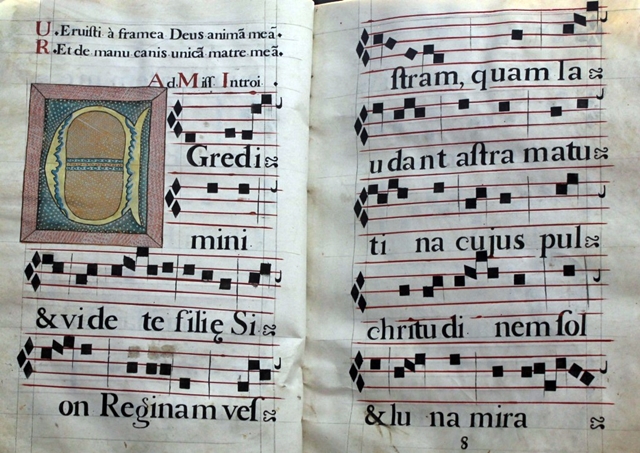 V. Eruisti à framea Deus animã meã.
R. Et de manu canis unicã matre meã.
Ad Miss Introi
E Gredi
mini
& vide te filię Si
on Reginam ves
stram, quam la
udant astra matu
ti na cujus pul
chritudi nem sol
& lu na mira
8